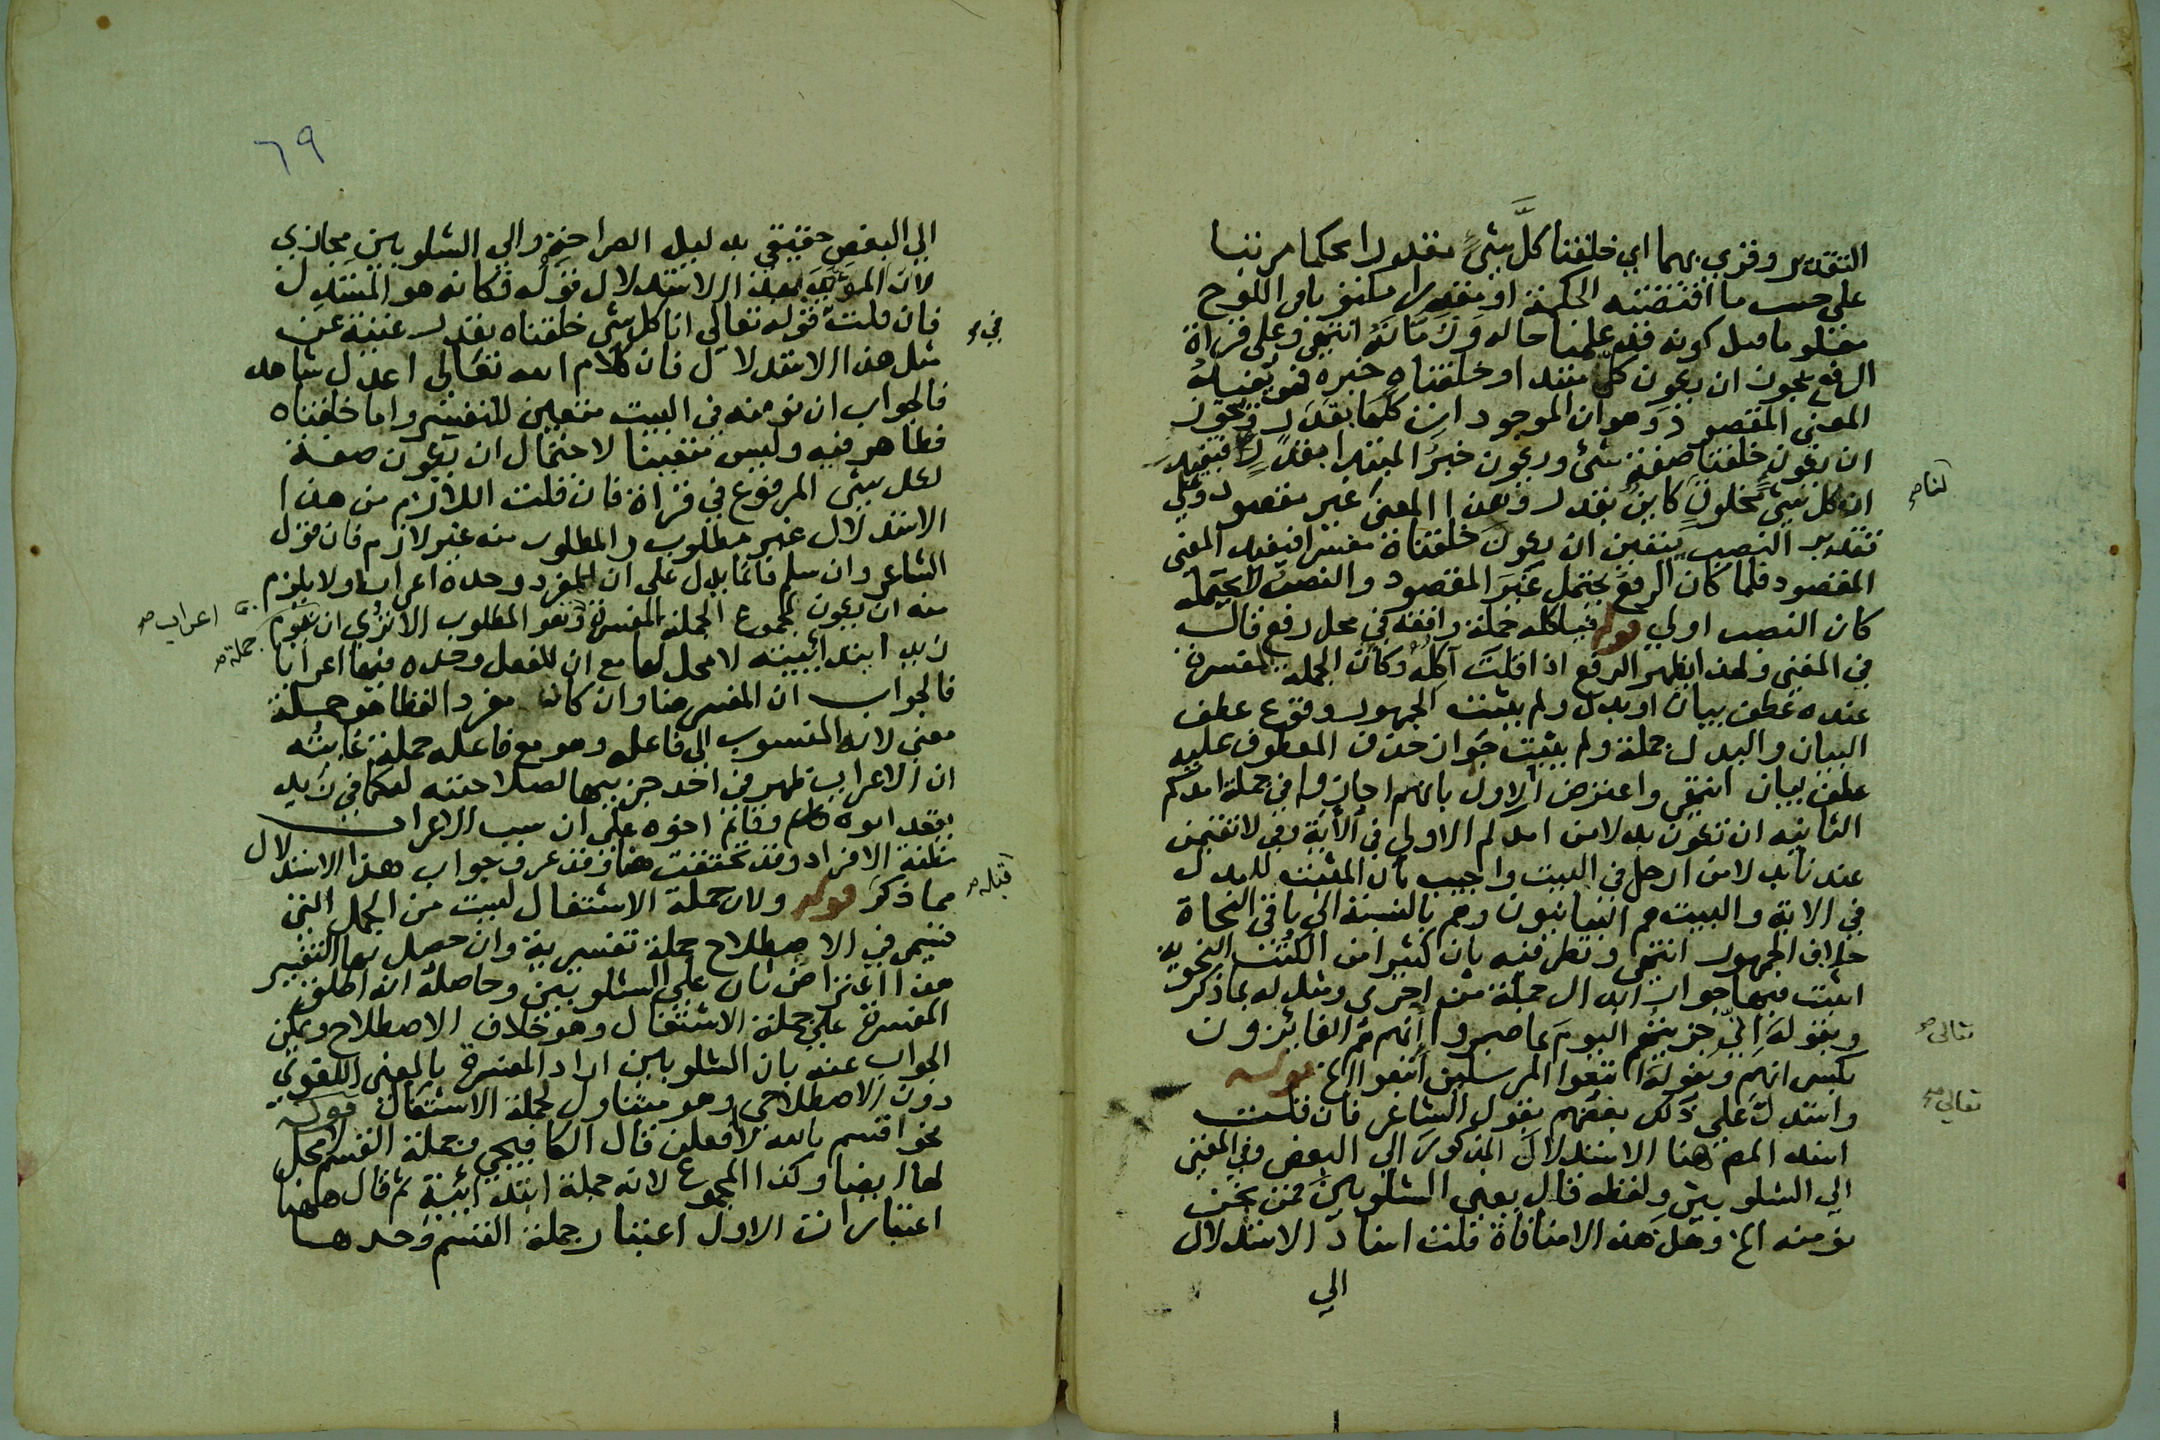 التقدير وقري بهما اي خلقنا كلَّ شيءٍ مقدورا محكما مرتبا
على حسب ما اقتضته الحكمة او مقدرا مكتوبا في اللوح
معلوما قبل كونه قد علمنا حاله وزمانه انتهى وعلى قراة
الرفع يجوز ان يكون كل مبتدا وخلقناه خبره فهو يفيد
المعنى المقصود وهو ان الموجودات كلها بقدر ويجوز
ان يكون خلقنا صفة شي ويكون خبر المبتدا بقدر فيفيد
ان كل شي مخلوق كاين بقدر وهذا المعنى غير مقصود وعلى
تقدير النصب يتعين ان يكون خلقناه مفسرا فيفيد المعنى
المقصود فلما كان الرفع يحتمل غير المقصود والنصب لا يحتمله
كان النصب اولي قوله فياكله جملة رافعة في محل رفع قال
في المغني ولهذا يظهر الرفع اذا قلت آكله وكان الجملة المفسرة
عنده عطف بيان او بدل ولم يثبت الجمهور وقوع عطف
البيان والبدل جملة ولم يثبت جواز حذف المعطوف عليه
عطف بيان انتهى واعترض الاول بانهم اجازوا في جملة امدكم
الثانية ان تكون بدلا من امدكم الاولى في الآية وفي لا تقيمن
عندنا بدلا من ارحل في البيت واجيب بان المثبت للبدل
في الاية والبيت هم البيانيون وهم بالنسبة الى باقي النحاة
خلاف الجمهور انتهى ونظر فيه بان كثيرا من الكتب النحوية
اثبت فيها جواز ابدال جملة من اخرى ومثل له بما ذكر
وبقوله اني جزيتهم اليوم بما صبروا انهم هم الفائزون
بكسر انهم وبقوله اتبعوا المرسلين اتبعوا الخ قوله
واستدل على ذلك بعضهم بقول الشاعر فان قلت
اسند المص هنا الاستدلال المذكور الى البعض وفي المغني
الى الشلوبين ولفظه قال يعني الشلوبين فمن نحن
نؤمنه الخ وهل هذه الا منافاة قلت اسناد الاستدلال
الي
لناصح
تعالى صح
تعالى صح
٦٩
الى البعض حقيقي بدليل الصراحة والى الشلوبين مجازي
لان المؤيد لهذا الاستدلال قوله فكانه هو المستدل
فان قلت قوله تعالى انا كل شي خلقناه بقدر غنية عن
مثل هذا الاستدلال فان كلام الله تعالى اعدل شاهد
فالجواب ان نومنه في البيت متعين للتفسير واما خلقناه
فظاهر فيه وليس متعينا لاحتمال ان يكون صفة
لكل شي المرفوع في قراة فان قلت اللازم من هذا
الاستدلال غير مطلوب والمطلوب منه غير لازم فان قول
الشاعر وان سلم فانما يدل على ان للمفرد وحده اعرابا ولا يلزم
منه ان يكون لمجموع الجملة المفسرة وهو المطلوب الا ترى ان يقوم
زيد ابتدائيته لا محل لها مع ان للفعل وحده فيها اعرابا
فالجواب ان المفسر هنا وان كان مفردا لفظا فهو جملة
معنى لانه المنسوب الى فاعله وهو مع فاعله جملة غايته
ان الاعراب يظهر في احد جزييها لصلاحيته له كما في زيد
يقعد ابوه وقائم اخوه على ان سبب الاعراب
مظنة الافراد وقد تحققت هنا وقد عرف جواب هذا الاستدلال
مما ذكر قوله ولان جملة الاشتغال ليست من الجمل التي
تسمى في الاصطلاح جملة تفسيرية وان حصل بها التفسير
هذا اعتراض ثان على الشلوبين وحاصله انه اطلق
المفسرة على جملة الاشتغال وهو خلاف الاصطلاح ويمكن
الجواب عنه بان الشلوبين اراد المفسرة بالمعنى اللغوي
دون الاصطلاحي وهو متناول لجملة الاشتغال قوله
نحو اقسم بالله لافعلن قال الكافيجي وجملة القسم لا محل
لها ايضا وكذا المجموع لانه جملة ابتدائية ثم قال هاهنا
اعتباران الاول اعتبار جملة القسم وحدها
في صح
اعراب صح
جملة صح
قبله صح